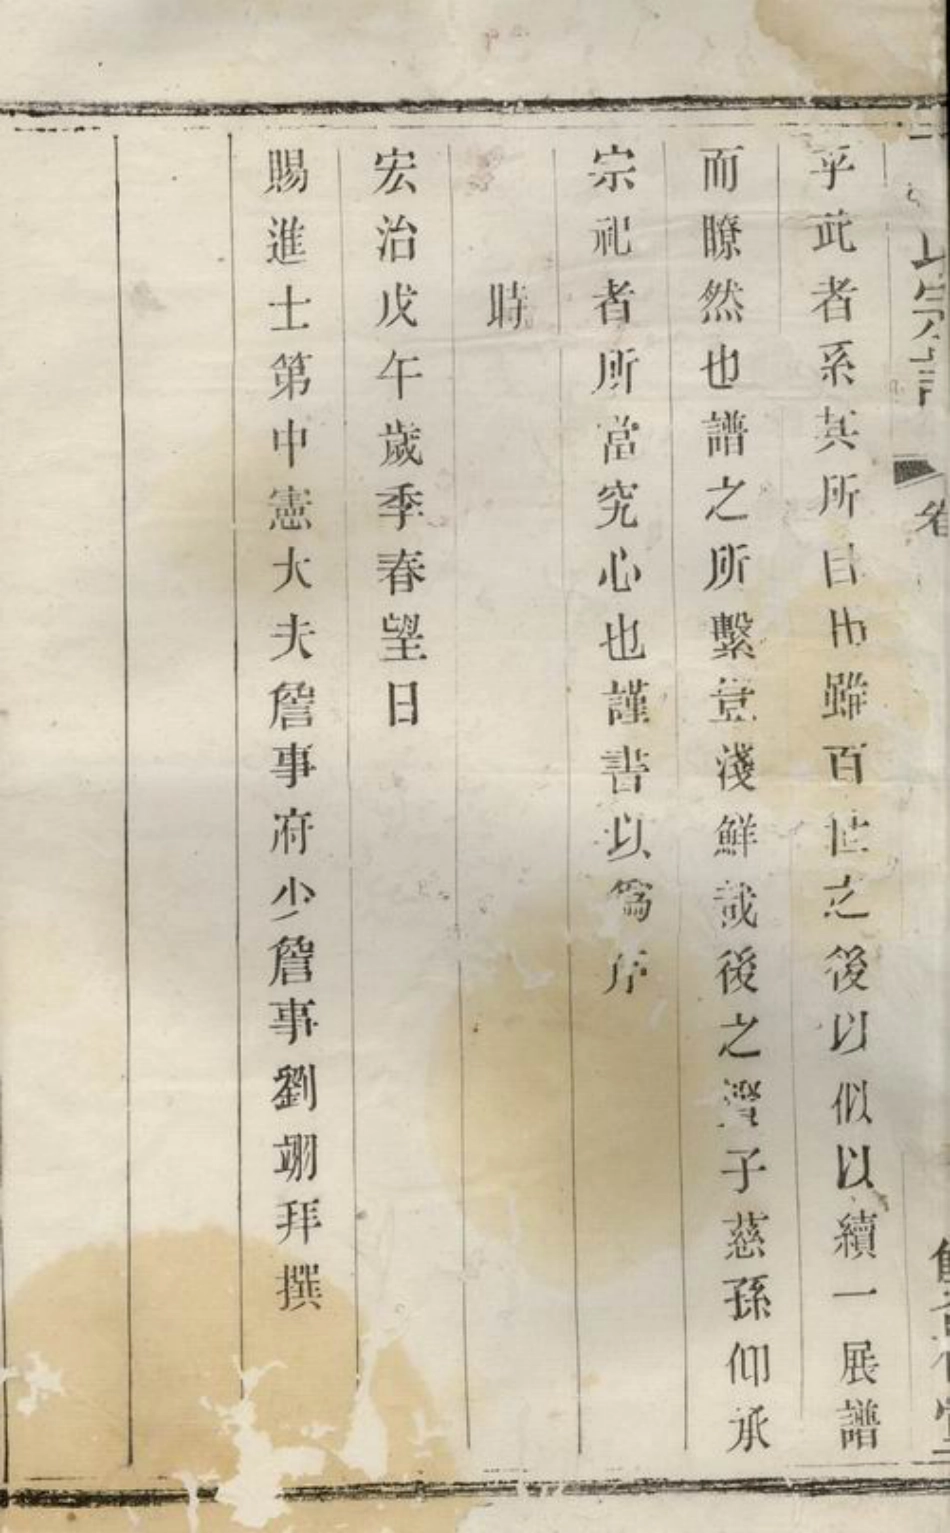 宗譜
卷
乎此者系其所自也雖百世之後以似以續一展譜
而瞭然也譜之所繫豈淺鮮哉後之子慈孫仰承
宗祀者所當究心也謹書以爲序
時
宏治戊午歲季春望日
賜進士第中憲大夫詹事府少詹事劉翊拜撰